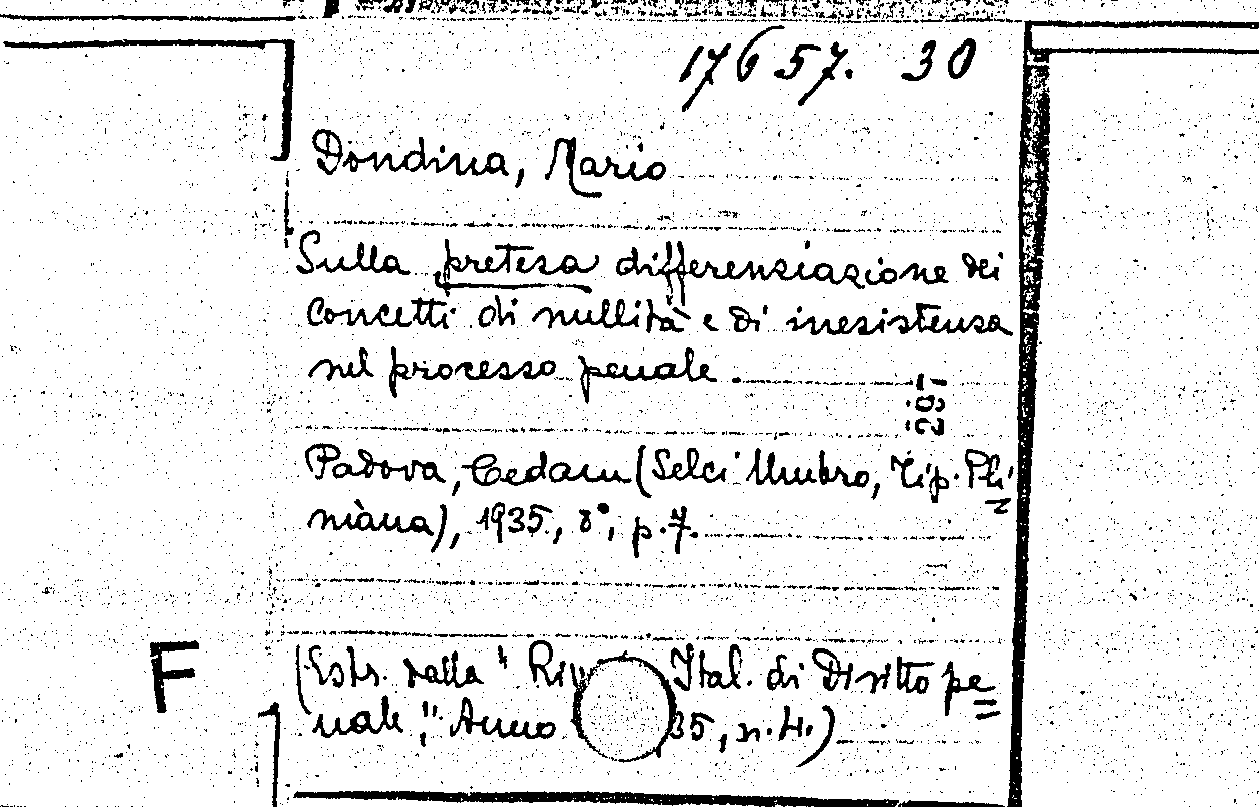 17657. 30
Dondina, Mario
Sulla pretesa differenziazione dei
concetti di nullità e di inesistenza
nel processo penale.
291
Padova, Cedam (Selci Umbro, Tip. Pli=
niana), 1935, 8°, p. 7.
(Estr. dalla "Riv Ital. di Diritto pe=
nale", Anno 35, n. 4.)
F